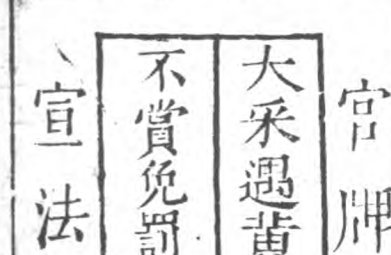 宮牌
大采遇黄
不賞免罰
宣法